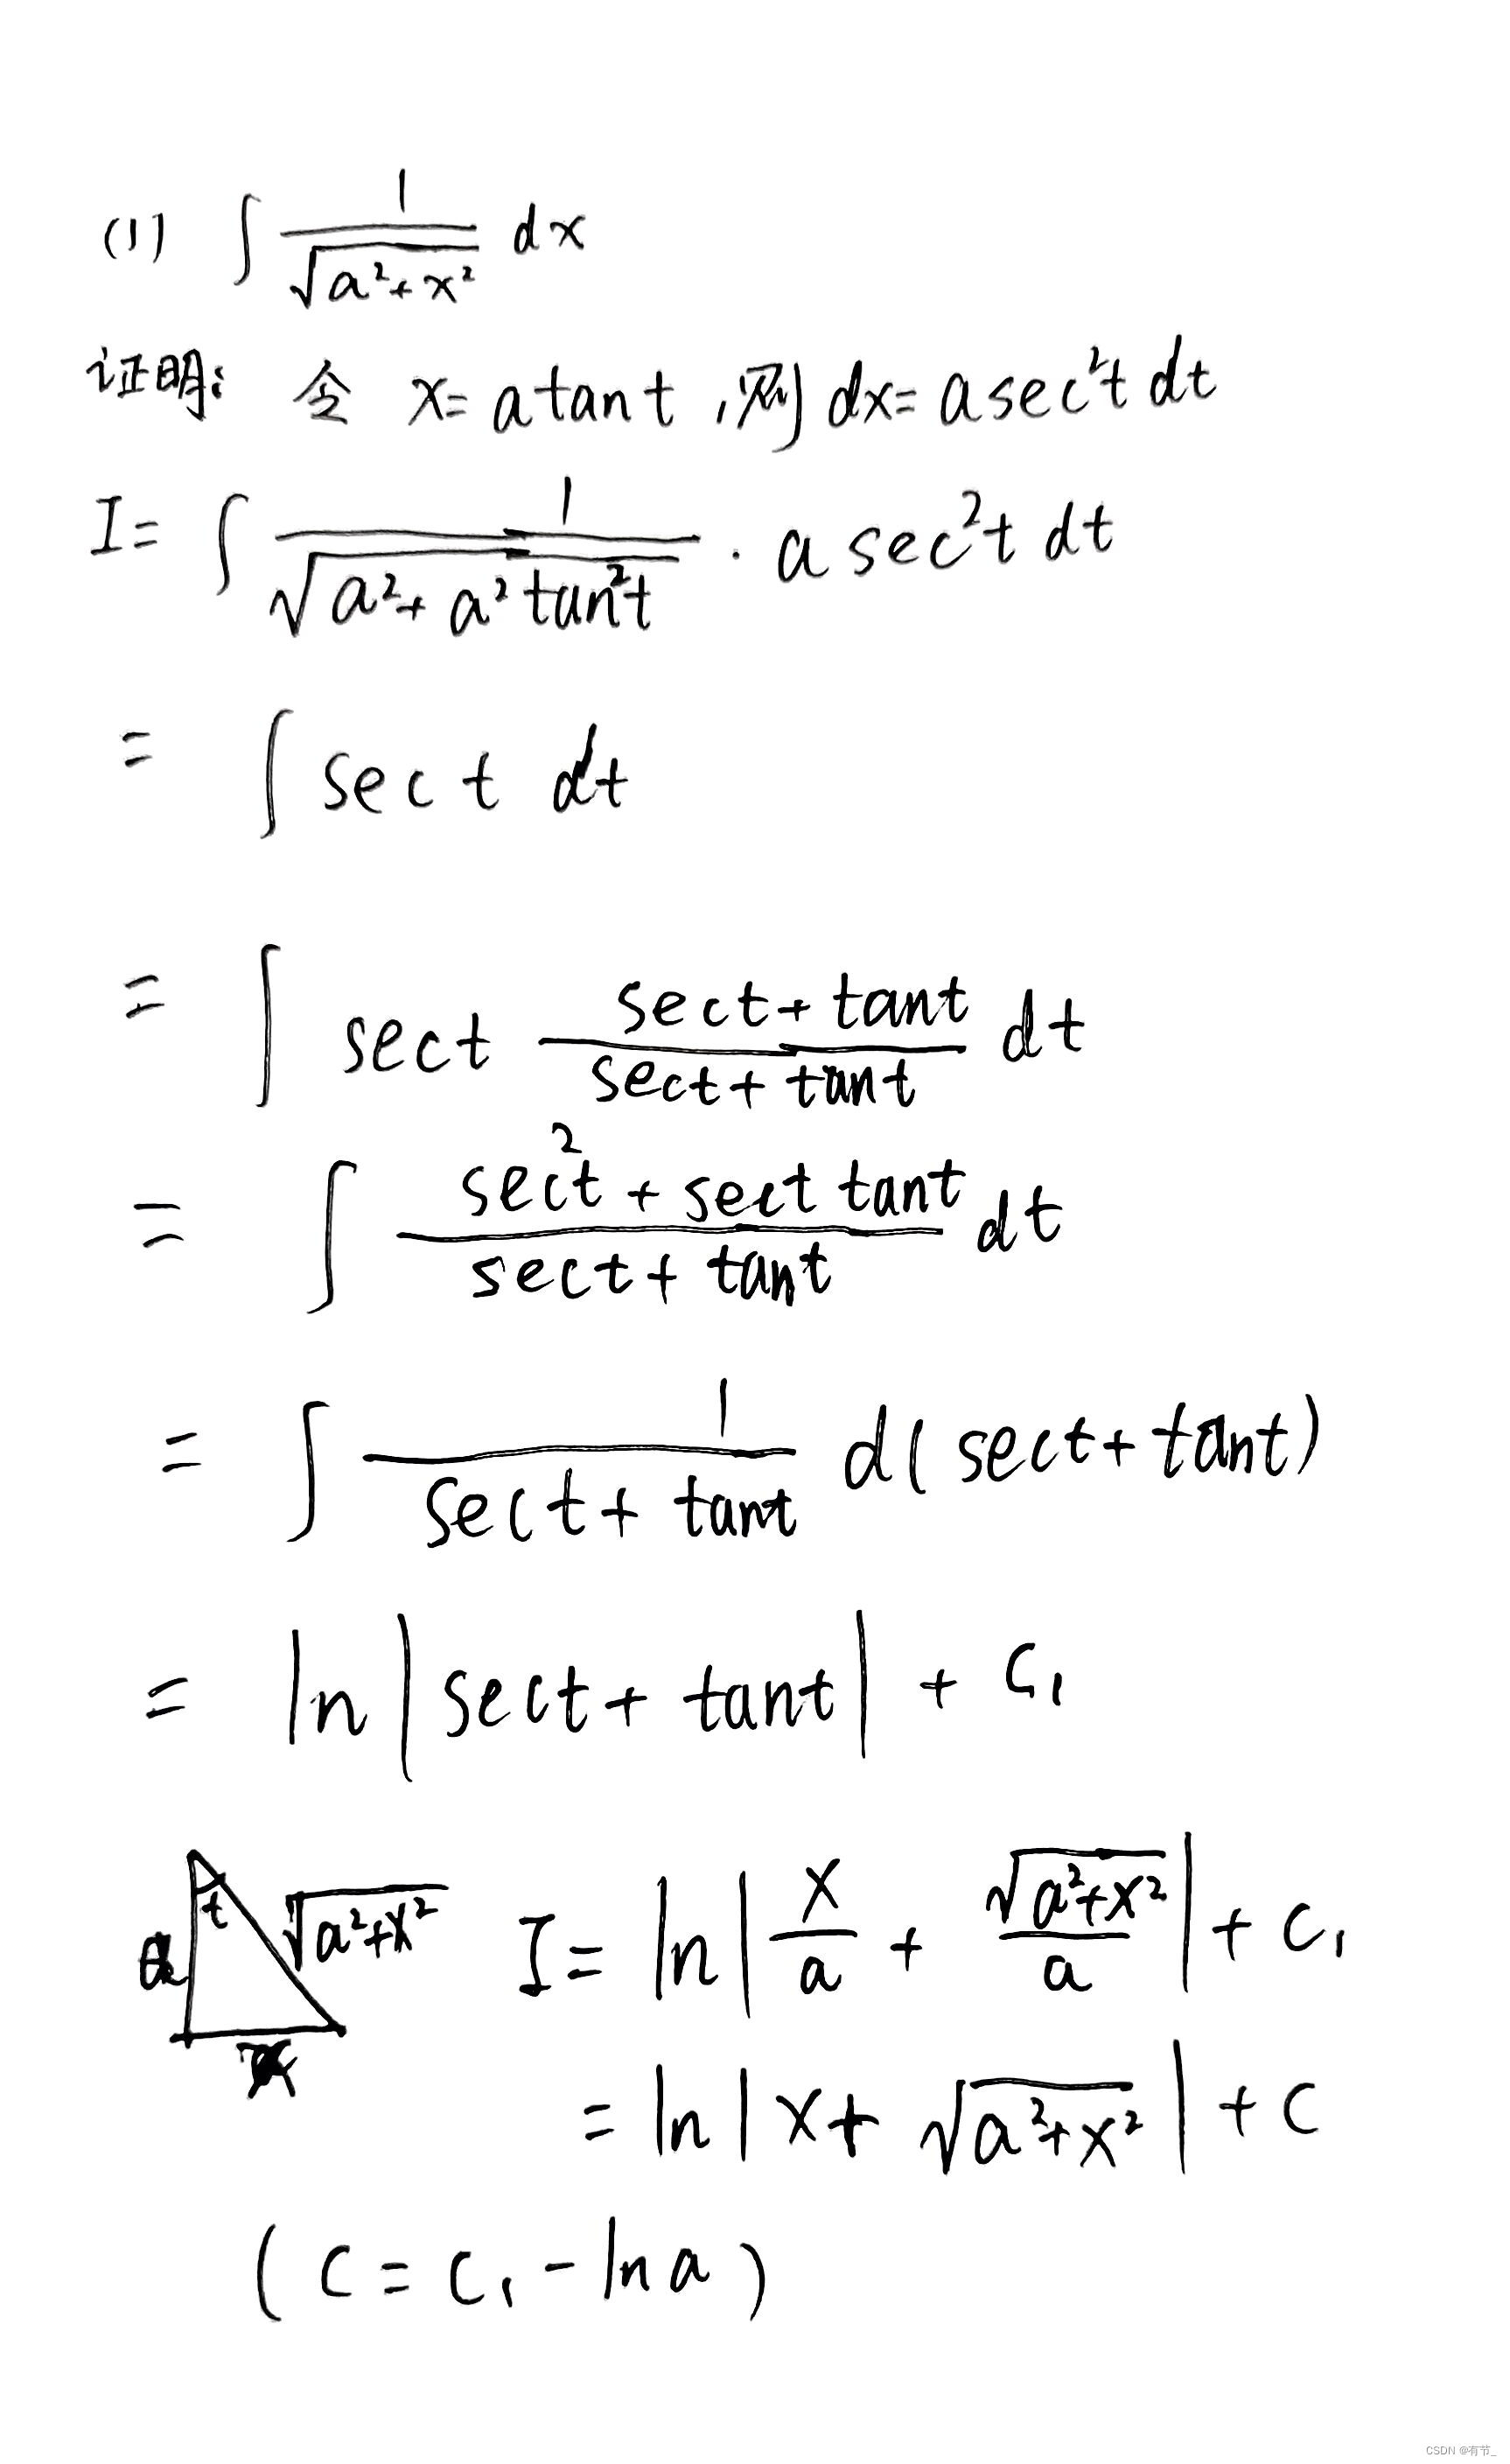 (1) ∫ 1/√(a²+x²) dx
证明: 令 x= a tan t ,则 dx= a sec²t dt
I= ∫ 1/√(a²+a²tan²t) · a sec²t dt
= ∫ sec t dt
= ∫ sect (sect+tant)/(sect+tant) dt
= ∫ (sec²t + sect tant)/(sect+tant) dt
= ∫ 1/(sect+tant) d(sect+tant)
= ln|sect+tant| + C₁
a t √(a²+x²) x
I= ln|x/a + √(a²+x²)/a| + C₁
= ln|x+√(a²+x²)| + C
(C = C₁ - ln a)
CSDN @有节_